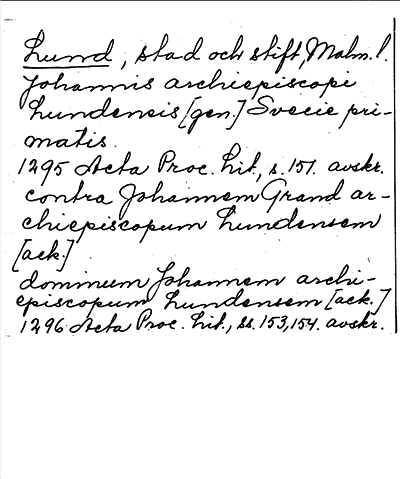 Lund, stad och stift, Malm. l.
Johannis archiepiscopi
Lundensis [gen.] Svecie pri-
matis.
1295 Acta Proc. Lit., s. 151. avskr.
contra Johannem Grand ar-
chiepiscopum Lundensem
[ack.]
dominum Johannem archi-
episcopum Lundensem [ack.]
1296 Acta Proc. Lit., ss. 153, 154. avskr.